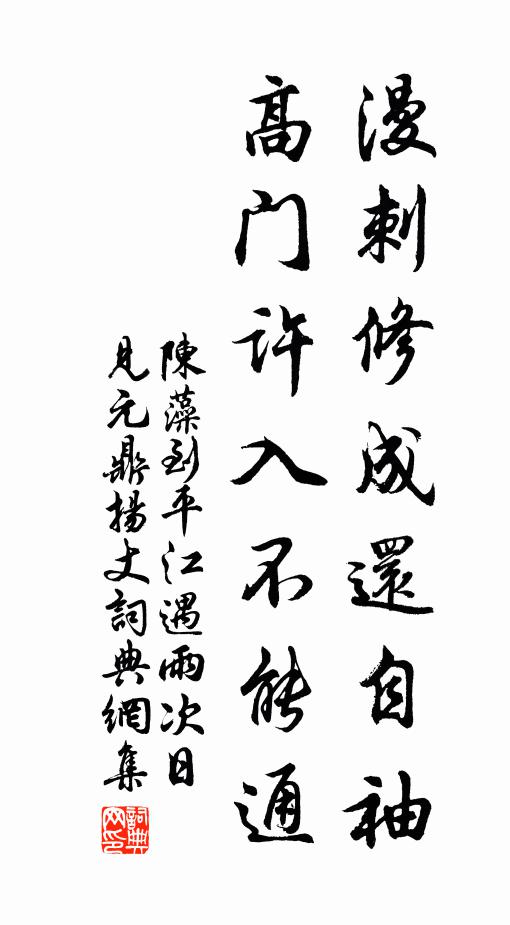 漫刺修成還自袖
高門許入不能通
陳藻到平江遇雨次日
見元鼎揚丈詞典網集
詞典
网印